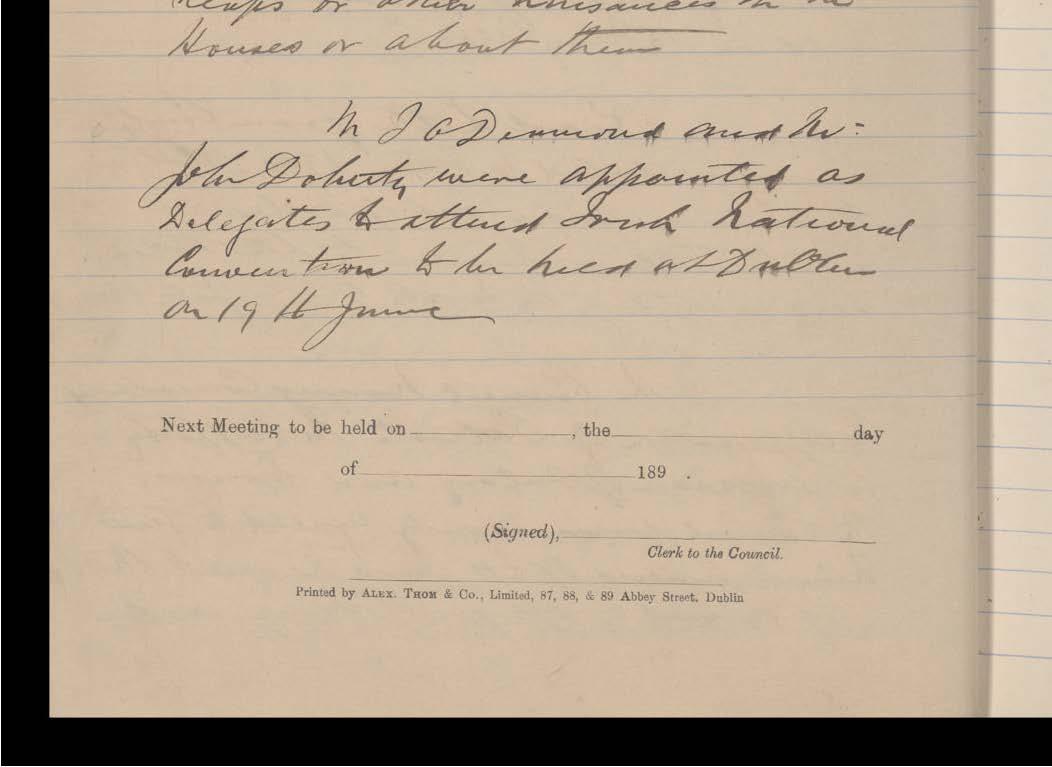 heaps or other nuisances in the
Houses or about them
M J O'Diamond and Mr:
John Doherty were appointed as
Delegates to attend Irish National
Convention to be held at Dublin
on 19th June
Next Meeting to be held on , the day
of 189 .
(Signed),
Clerk to the Council.
Printed by ALEX. THOM & Co., Limited, 87, 88, & 89 Abbey Street. Dublin